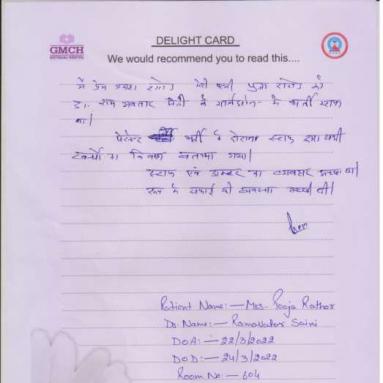 GMCH
DELIGHT CARD
We would recommend you to read this....
मैं प्रेम मेरी पत्नी पूजा राठौर को
डा. राम अवतार सैनी के मार्गदर्शन में भर्ती
था।
पेशेन्ट भर्ती के दौरान स्टाफ द्वारा सभी
का विवरण बताया गया।
स्टाफ एवं डाक्टर का व्यवहार अच्छा था।
रूम के सफाई की व्यवस्था अच्छी थी।
Patient Name:- Mrs. Pooja Rathor
Dr. Name:- Ramavatar Saini
DOA:- 22/3/2022
DOD:- 24/3/2022
Room No:- 604